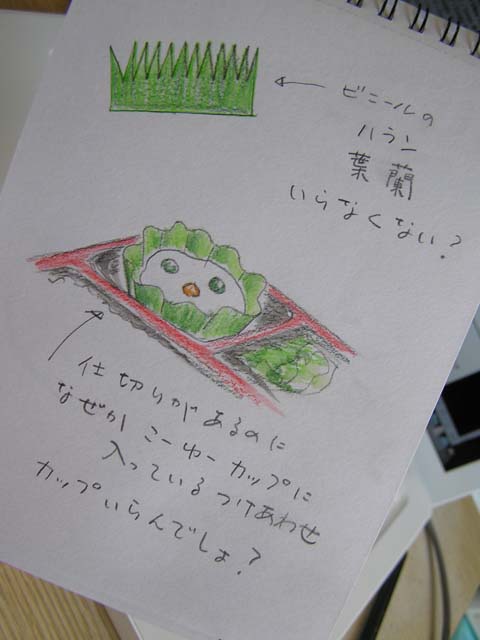 ビニールの
ハラン
葉蘭
いらなくない?
仕切りがあるのに
なぜか こーゆーカップに
入っている つけあわせ
カップいらんでしょ?